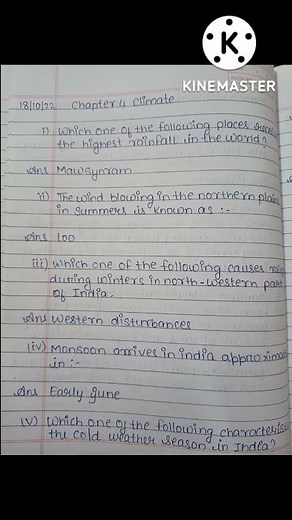 KINEMASTER
18/10/22 Chapter 4 Climate
i) Which one of the following places
the highest rainfall in the world?
Ans Mawsynram
ii) The wind blowing in the northern plains
in summers is known as :-
Ans loo
iii) Which one of the following causes
during winters in north-western part
of India.
Ans Western disturbances
(iv) Monsoon arrives in india
in :-
Ans Early june
(v) Which one of the following
the cold weather season in India?